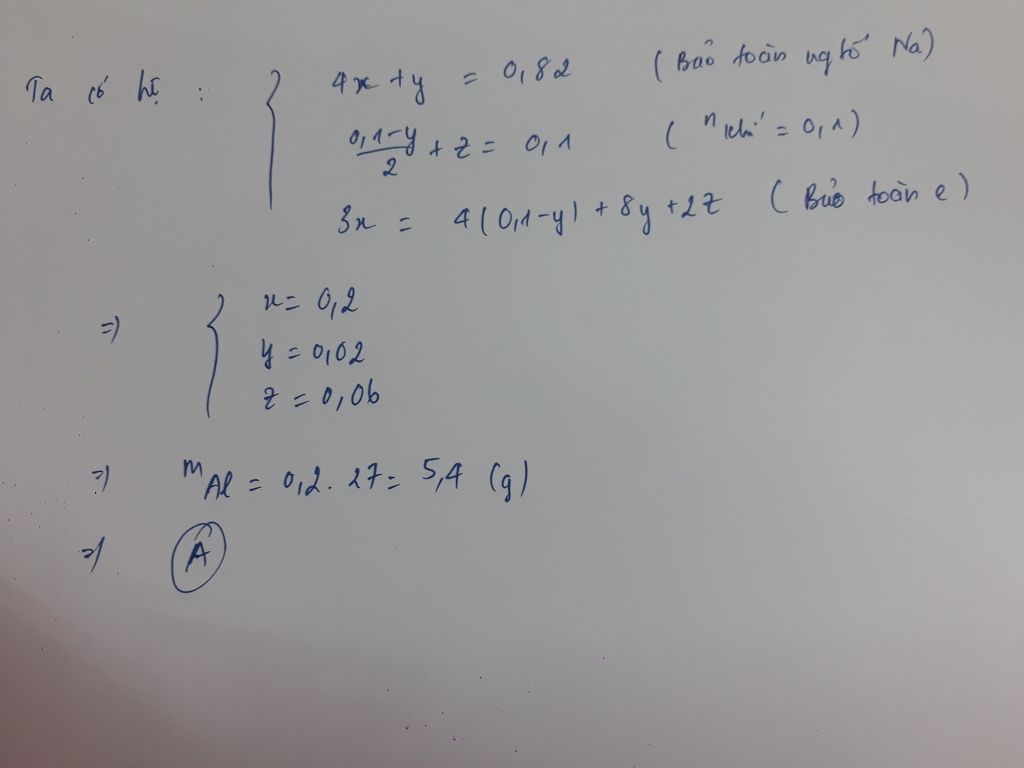 Ta có hệ : { 4x + y = 0,82 (Bảo toàn ngtố Na)
(0,1-y)/2 + z = 0,1 (n khí = 0,1)
3x = 4(0,1-y) + 8y + 2z (Bảo toàn e)
=> { x = 0,2
y = 0,02
z = 0,06
=> mAl = 0,2 . 27 = 5,4 (g)
=> A